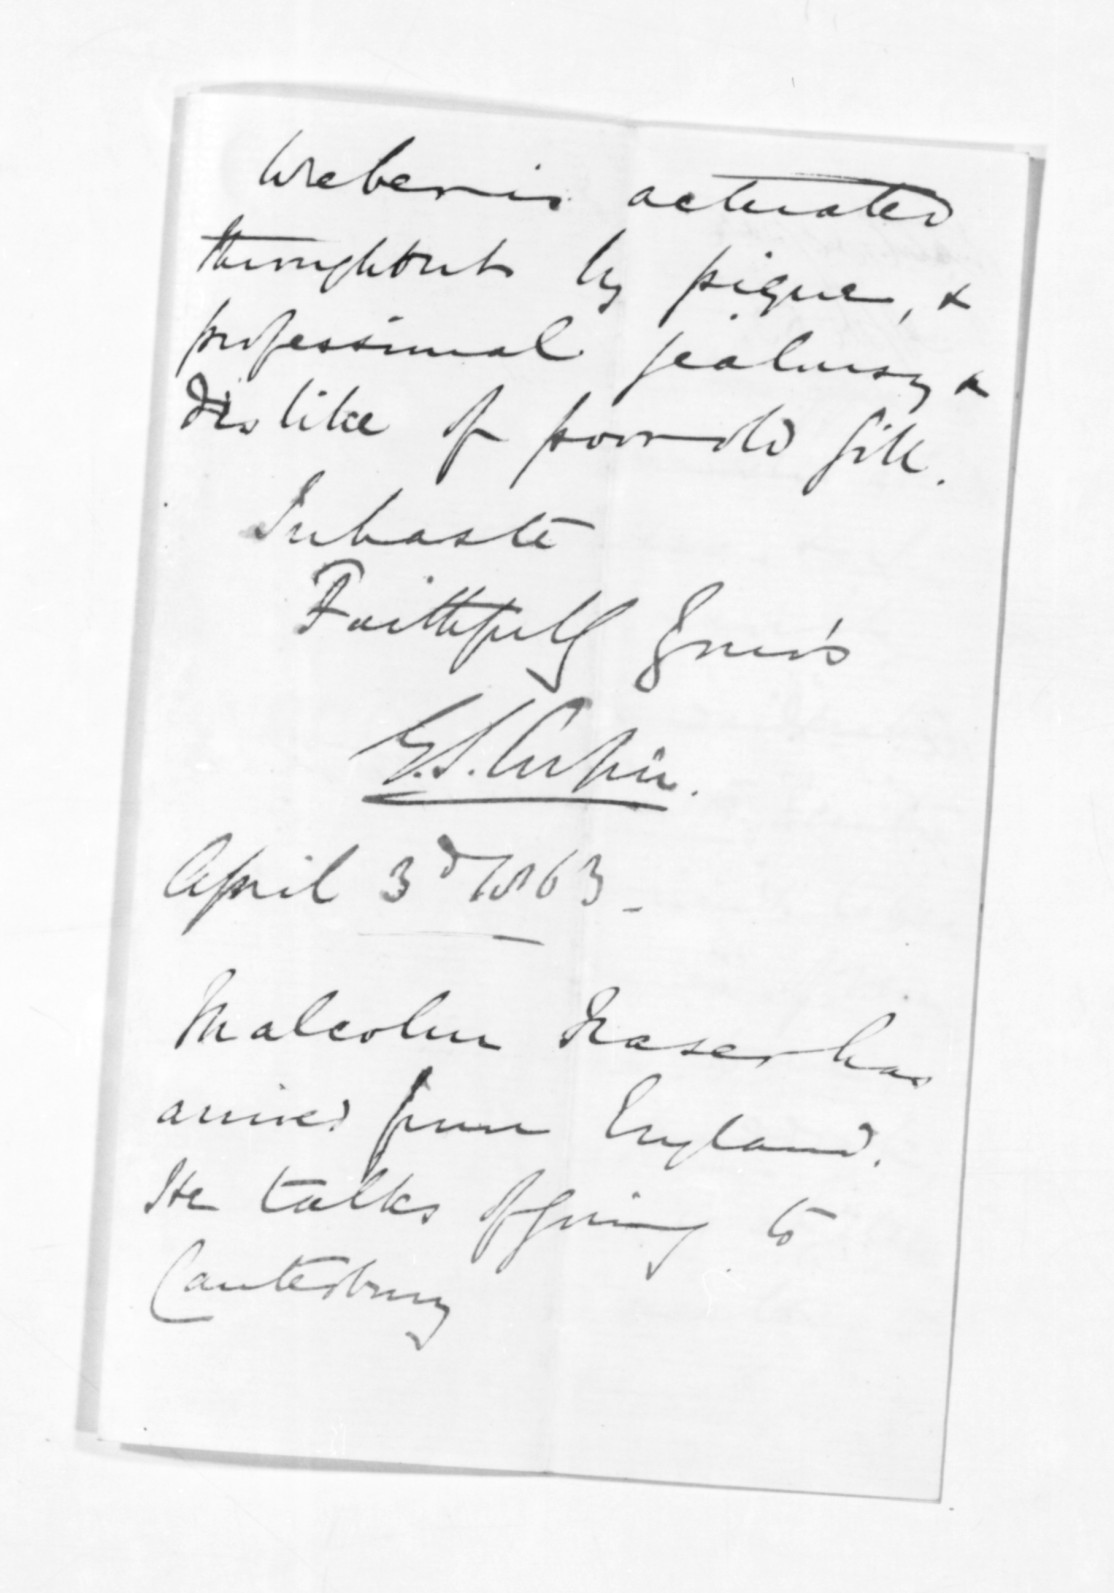 Weber is actuated
throughout by pique, &
professional jealousy &
dislike of poor old Gill.
In haste
Faithfully Yours
G. S. Cooper.
April 3d 1863.
Malcolm Fraser has
arrived from England.
He talks of going to
Canterbury